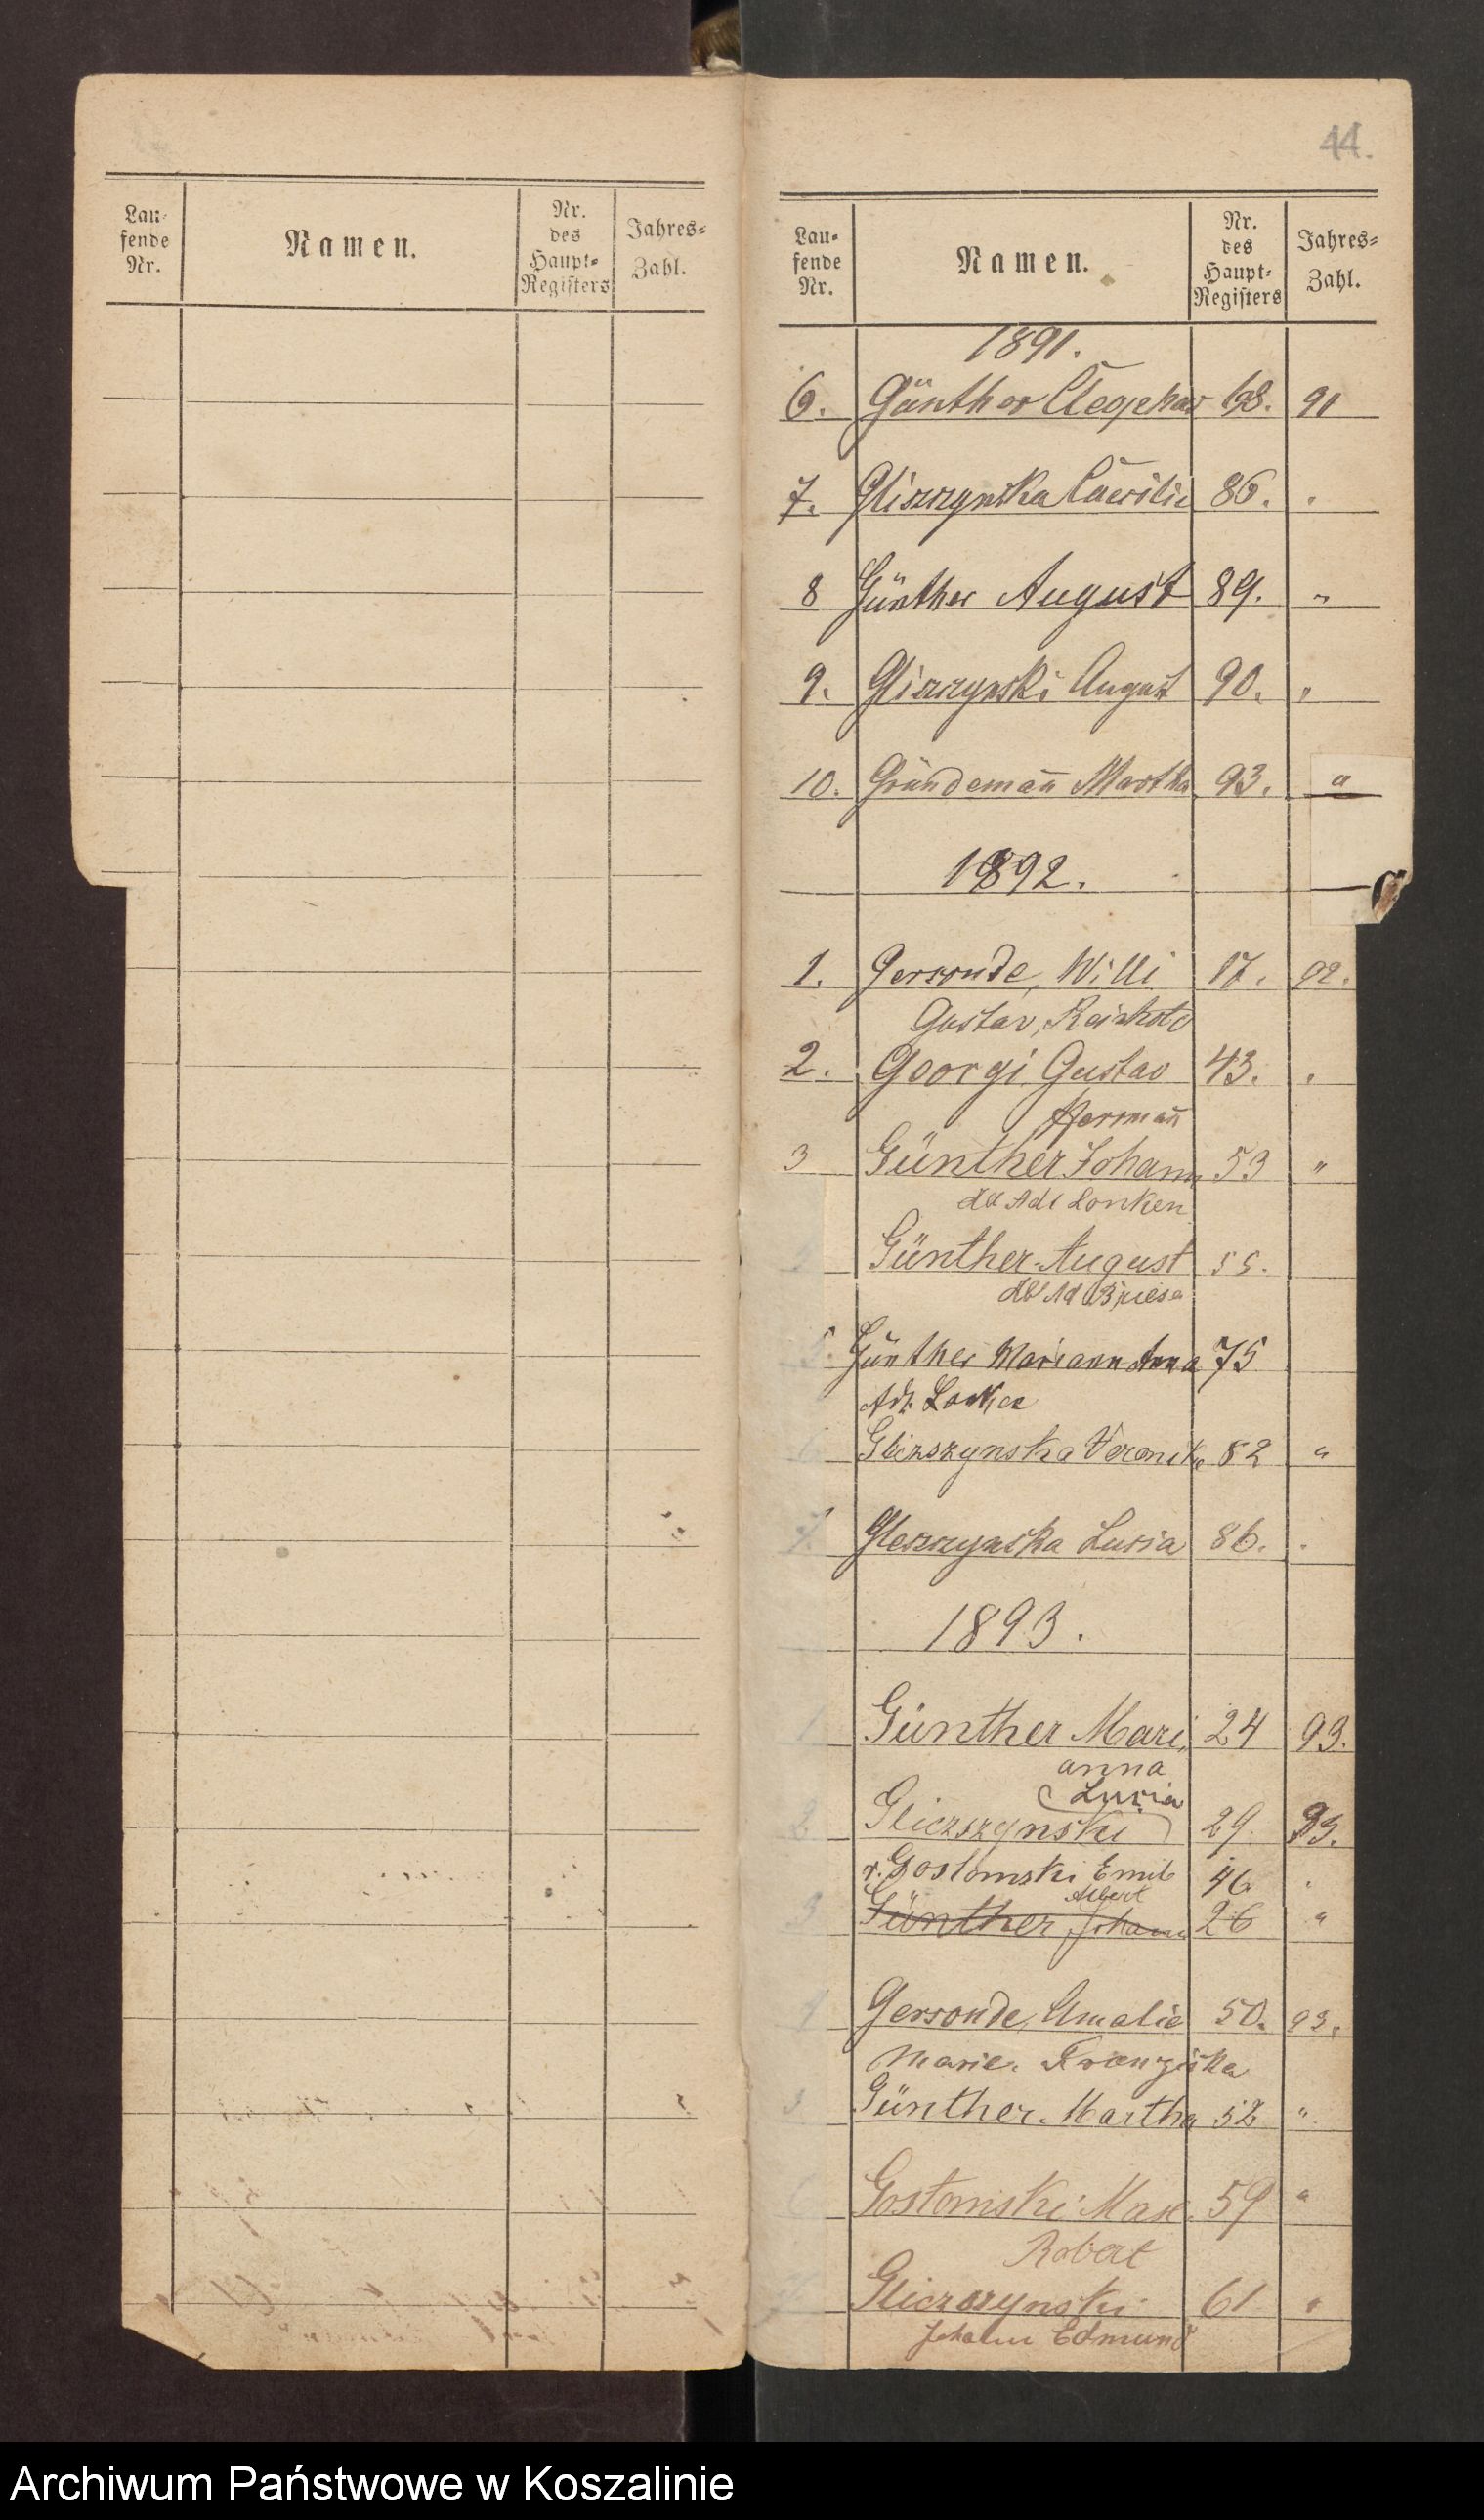 Lau-
fende
Nr.
Namen.
Nr.
des
Haupt-
Registers
Jahres-
Zahl.
44.
Lau-
fende
Nr.
Namen.
Nr.
des
Haupt-
Registers
Jahres-
Zahl.
1891.
6. Günther 68. 91
7. Gliszczynska Cäcilie 86. "
8 Günther August 89. "
9. Gliszczynski August 90. "
10. Gründemañ Martha 93. "
1892.
1. Gersonde, Willi 17. 92.
Gustav, Reinhold
2. Georgi Gustav 43. "
Hermañ
3 Günther Johann 53 "
Adl Lonken
Günther August 55.
Ad Briesen
5. Günther Mariann Anna 75
Adl. Lonken
6 Gliczszynska Veronika 82 "
7. Gleszczynska Lucia 86. "
1893.
1 Günther Mari, 24 93.
anna
Lucia
2 Gliczszynski 29. 93.
v. Gostomski Emil 46 "
Albert
3 Günther Johann 26 "
4 Gersonde, Amalie 50. 93.
Marie. Franziska
5 Günther. Martha 52 "
6 Gostomski Max. 59 "
Robert
Gliczszynski 61 "
Johann Edmund
Archiwum Państwowe w Koszalinie